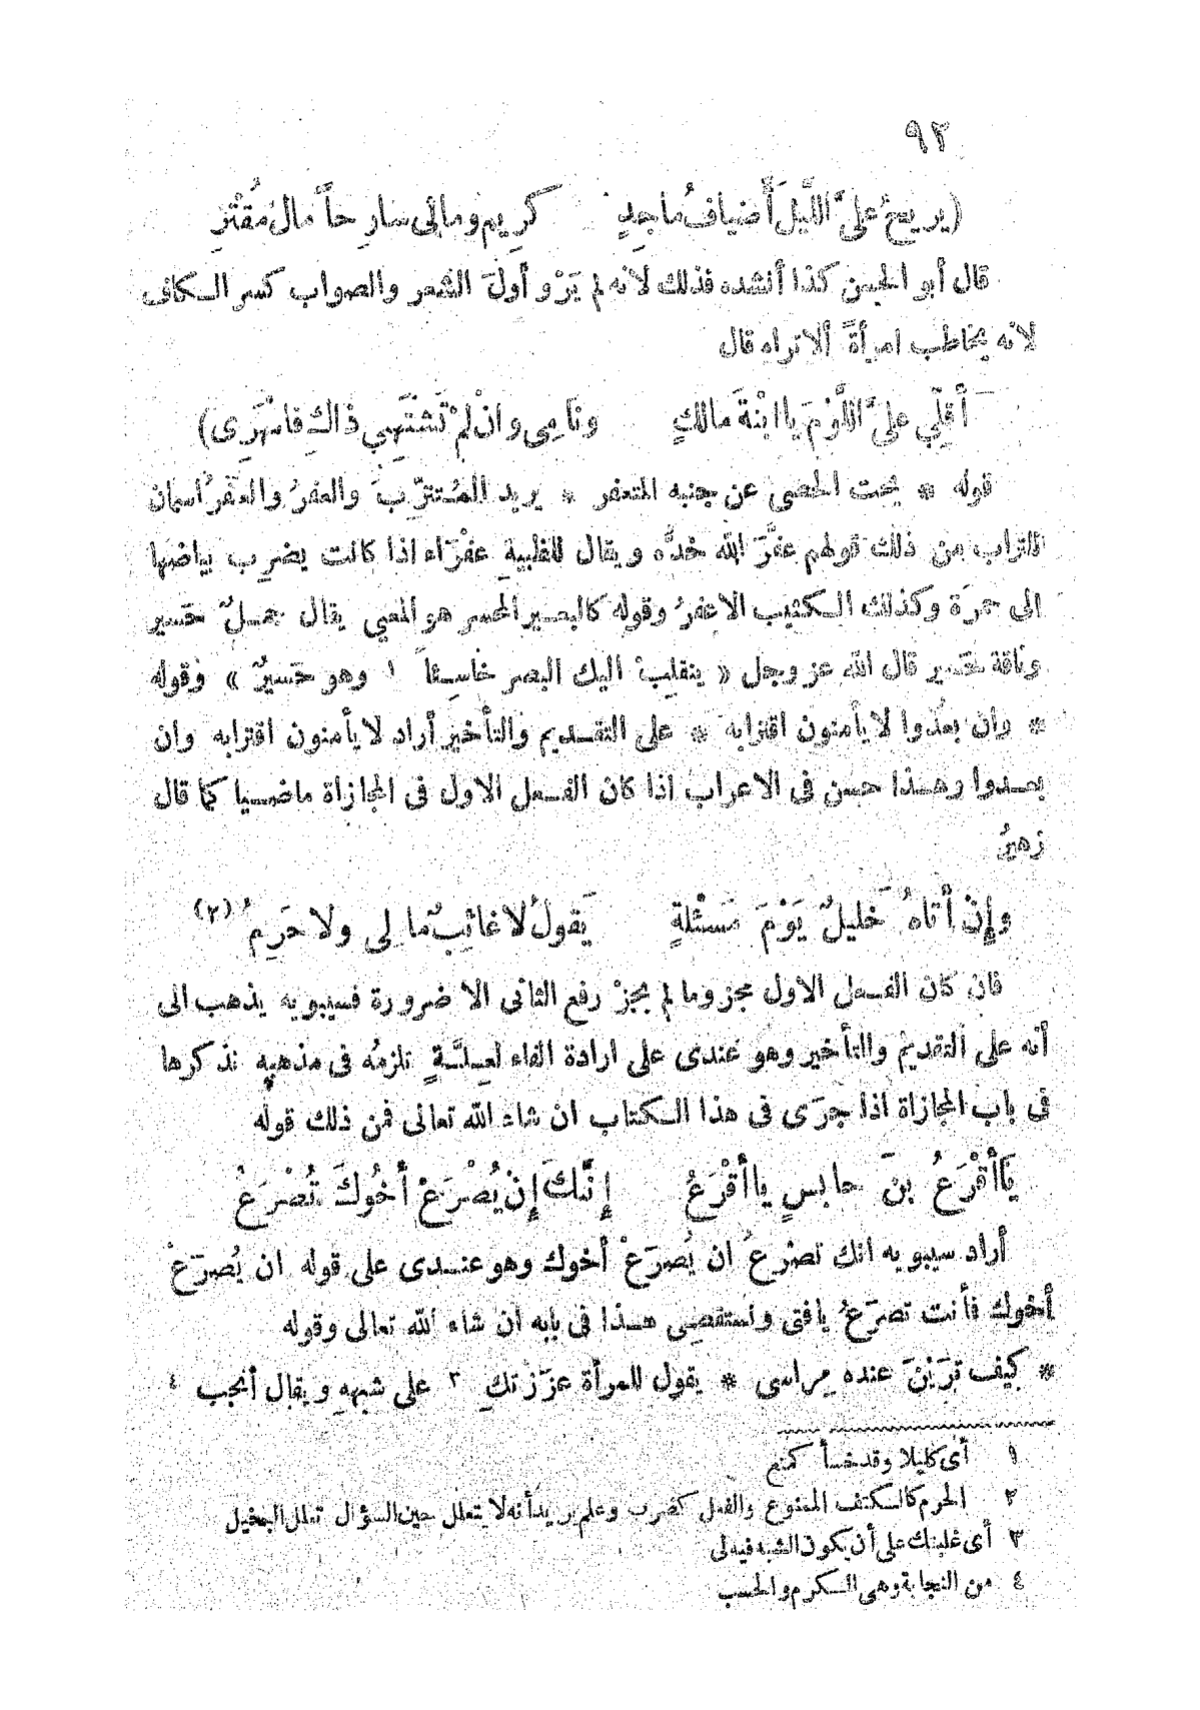 ٩٢
(يريحُ علىَّ اللَّيلَ أَضيافُ ماجدٍ كريمٍ ومالى سارحاً مالُ مُقْتِرِ
قال أبو الحسن كذا أنشده فذلك لانه لم يَرْو أولَ الشعر والصواب كسر الكاف
لانه يخاطب امرأةً ألا تراه قال
أَقلّي علىَّ اللَّوْمَ يا ابْنةَ مالكٍ ونَامِى وانْ لَمْ تَشْتَهِي ذاكِ فاسْهَرِى)
قوله * يحت الحصى عن جنبه المتعفر * يريد المُتترّبَ والعفرُ والعَفَرُ اسمان
للتراب من ذلك قولهم عفَّرَ الله خدَّه ويقال للظبية عفْرَاء اذا كانت يضرِب بياضها
الى حمرَة وكذلك الكثيب الاعفرُ وقوله كالبعير المحسر هو المعيي يقال جملٌ حَسير
وناقة حَسير قال الله عز وجل « ينقلبْ اليك البصر خاسِئاً ١ وهو حَسيرٌ » وقوله
* وان بعُدوا لا يأمنون اقترابه * على التقديم والتأخير أراد لا يأمنون اقترابه وان
بعدوا وهذا حسن فى الاعراب اذا كان الفعل الاول فى المجازاة ماضيا كما قال
زهيرُ
وإِنْ أَتاهُ خليلٌ يَوْمَ مَسْئلةٍ يَقولُ لا غائبٌ ما لى ولا حَرِمُ (٢)
فان كان الفعل الاول مجزوما لم يجزْ رفع الثانى الا ضرورة فسيبويه يذهب الى
أنه على التقديم والتأخير وهو عندى على ارادة الفاء لعلَّةٍ تلزمُه فى مذهبِه نذكرها
فى باب المجازاة اذا جرَى فى هذا الكتاب ان شاء الله تعالى فمن ذلك قولُه
يَا أَقْرَعُ بنَ حابسٍ يا أَقْرَعُ إِنَّكَ إِن يُصْرَعْ أَخُوكَ تُصْرَعُ
أراد سيبويه انك تصْرعُ ان يُصرَعْ أخوك وهو عندى على قوله ان يُصرَعْ
أخوك فأنت تصرَعُ يا فتى ونستقصِى هذا فى بابه ان شاء الله تعالى وقوله
* كيف تَرَيْنَ عنده مِراسى * يقول للمرأة عزَزتكِ ٣ على شبهِهِ ويقال أنجب ٤
١ أى كليلا وقد خسأ كمنع
٢ الحرم كالكتف الممنوع والفعل كضرب وعلم يريد أنه لا يتعلل حين السؤال تعلل البخيل
٣ أى غلبتك على أن يكون الشبه فيه لى
٤ من النجابة وهى الكرم والحسب